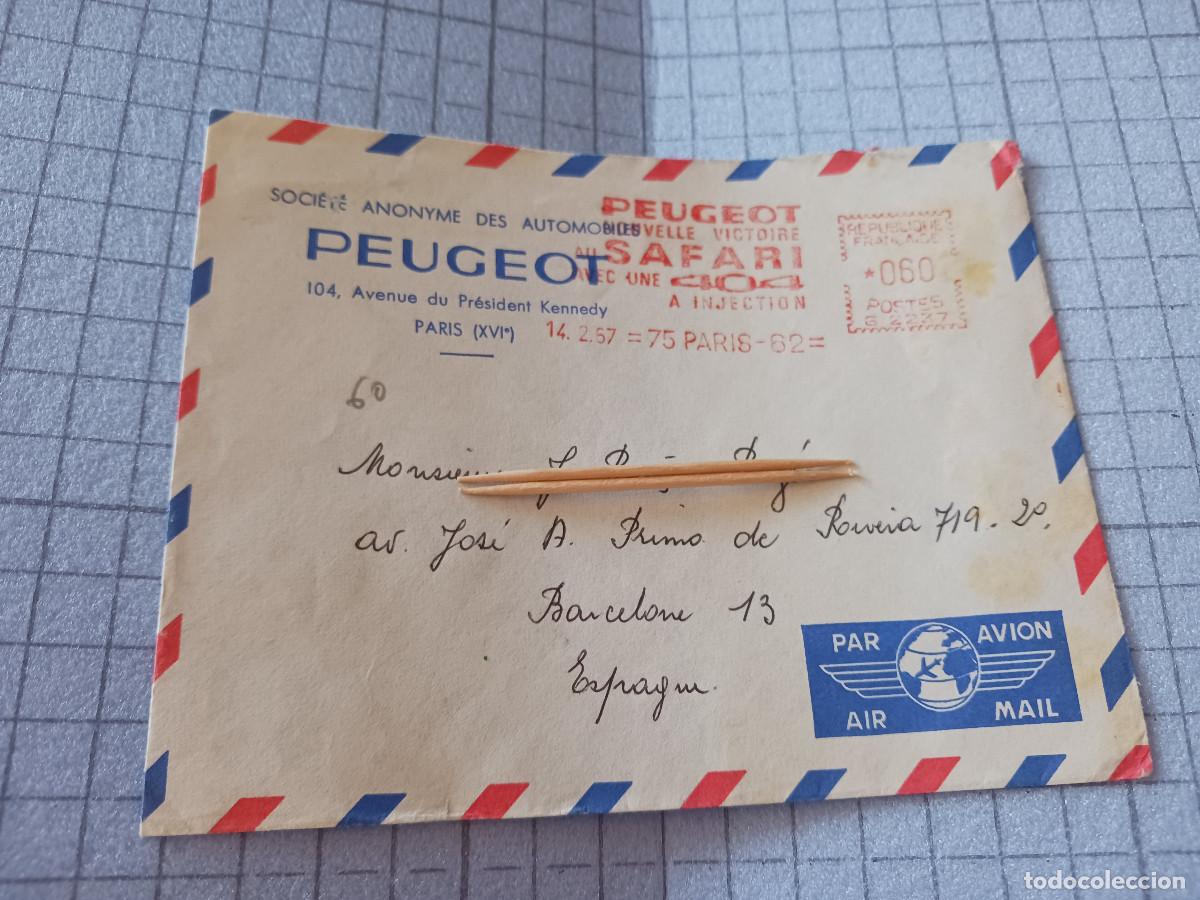 SOCIÉTÉ ANONYME DES AUTOMOBILES
PEUGEOT
104, Avenue du Président Kennedy
PARIS (XVIe)
PEUGEOT
NOUVELLE VICTOIRE
AU SAFARI
AVEC UNE 404
A INJECTION
14. 2. 67 = 75 PARIS - 62 =
REPUBLIQUE
FRANCAISE
*060
POSTES
60
Monsieur J.
av. José A. Primo de Riveria 719 - 2º.
Barcelone 13
Espagne.
PAR AVION
AIR MAIL
todocoleccion